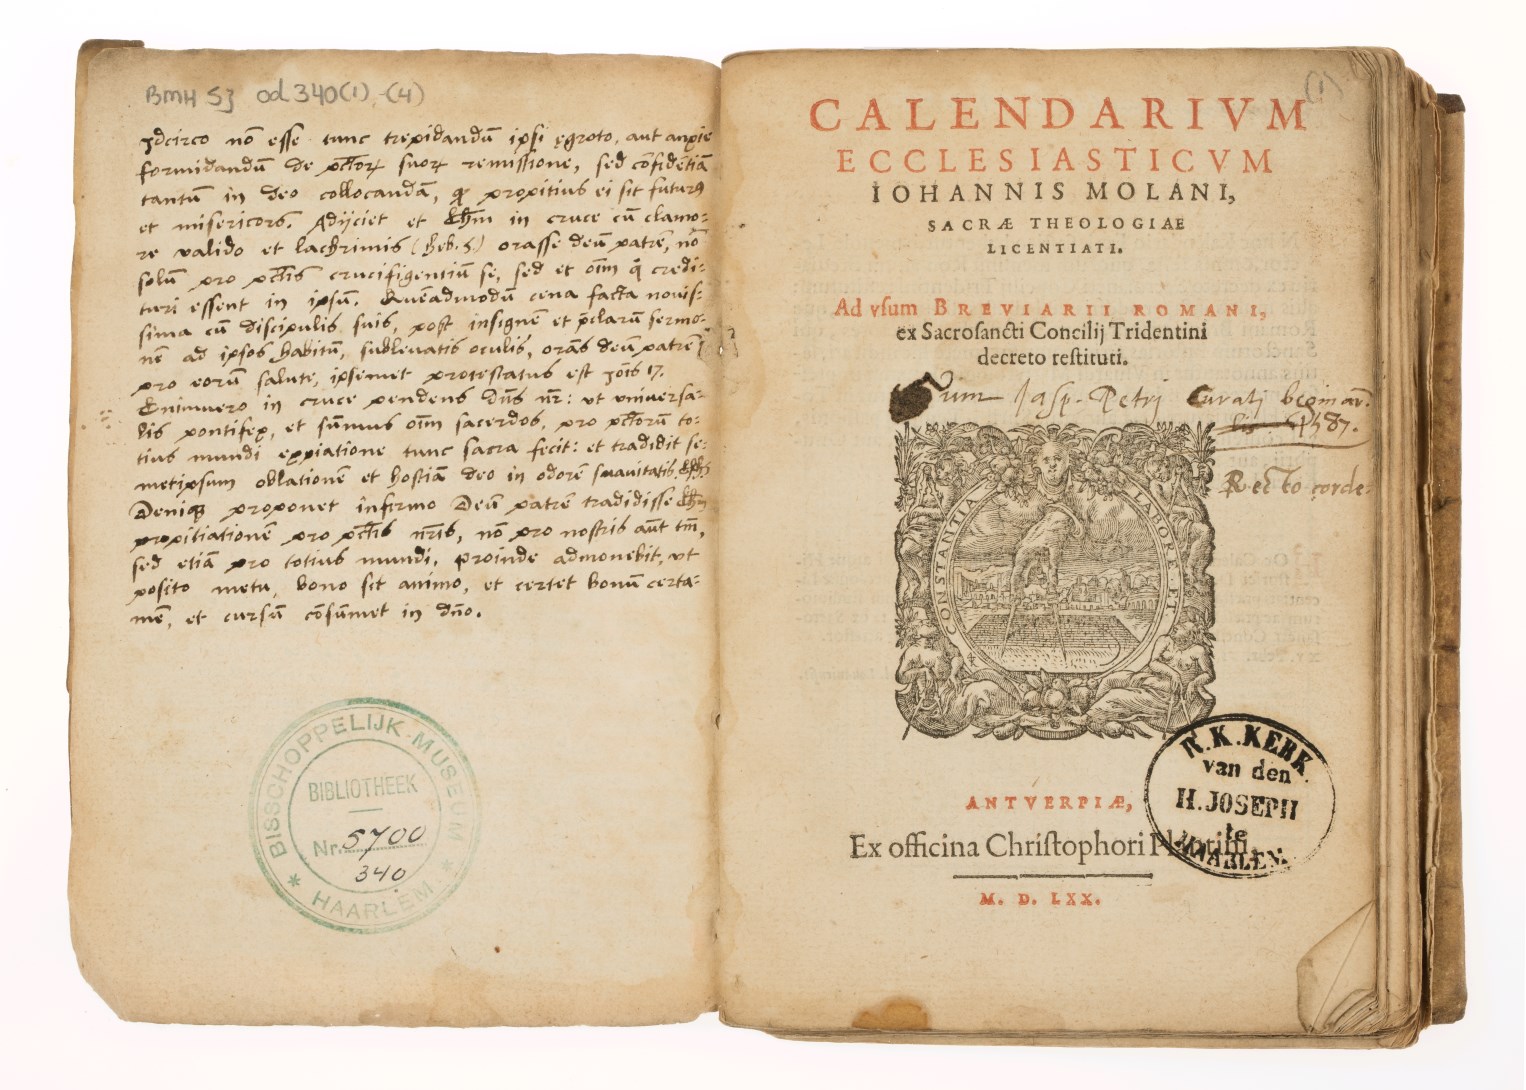 BMH SJ od 340(1)-(4)
Idcirco nõ esse tunc trepidandũ ipsi ęgroto, aut anxie
formidandũ de pctõrꝝ suorꝝ remissione, sed cõfidẽtiã
tantũ in deo collocandã, propitius ei sit futurꝰ
et misericors. Adijciet et Chrm̃ in cruce cũ clamo:
re valido et lachrimis (heb. 5) orasse deũ patrẽ, nõ
solũ pro pctĩs crucifigentiũ se, sed et oĩm q̃ credi:
turi essent in ipsũ. Quẽadmodũ cena facta novis:
sima cũ discipulis suis, post insignẽ et p̃clarũ sermo:
nẽ ad ipsos habitũ, sublevatis oculis, orãs deũ patrẽ
pro eorũ salute, ipsemet protestatus est Joĩs 17.
Enimvero in cruce pendens dñs nr̃: ut universa:
lis pontifex, et sũmus oĩm sacerdos, pro pctõrũ to:
tius mundi expiatione tunc sacra fecit: et tradidit se:
metipsum oblationẽ et hostiã deo in odorẽ suavitatis.
Deniqꝫ proponet infirmo Deũ patrẽ tradidisse Chrm̃
propitiationẽ pro pctĩs nr̃is, nõ pro nostris aũt tm̃,
sed etiã pro totius mundi. Proinde admonebit, ut
posito metu, bono sit animo, et certet bonũ certa:
mẽ, et cursũ cõsũmet in dño.
BISSCHOPPELIJK-MUSEUM
BIBLIOTHEEK
Nr. 5700
340
* HAARLEM *
(1)
CALENDARIVM
ECCLESIASTICVM
IOHANNIS MOLANI,
SACRÆ THEOLOGIAE
LICENTIATI.
Ad vſum BREVIARII ROMANI,
ex Sacroſancti Concilij Tridentini
decreto reſtituti.
Sum Jasp. Petri Curati beginar.
lis 1587.
Recto corde.
CONSTANTIA
LABORE ET
R.K. KERK
van den
H. JOSEPH
te
HAARLEM.
ANTVERPIÆ,
Ex officina Chriſtophori Plantini,
M. D. LXX.